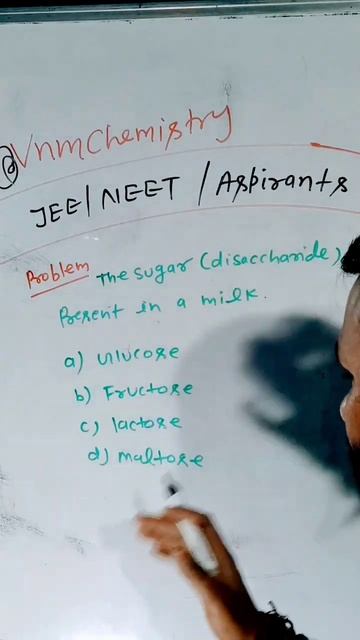 @VnmChemistry
JEE/NEET/Aspirants
Problem The sugar (disaccharide)
Present in a milk.
a) Glucose
b) Fructose
c) lactose
d) maltose